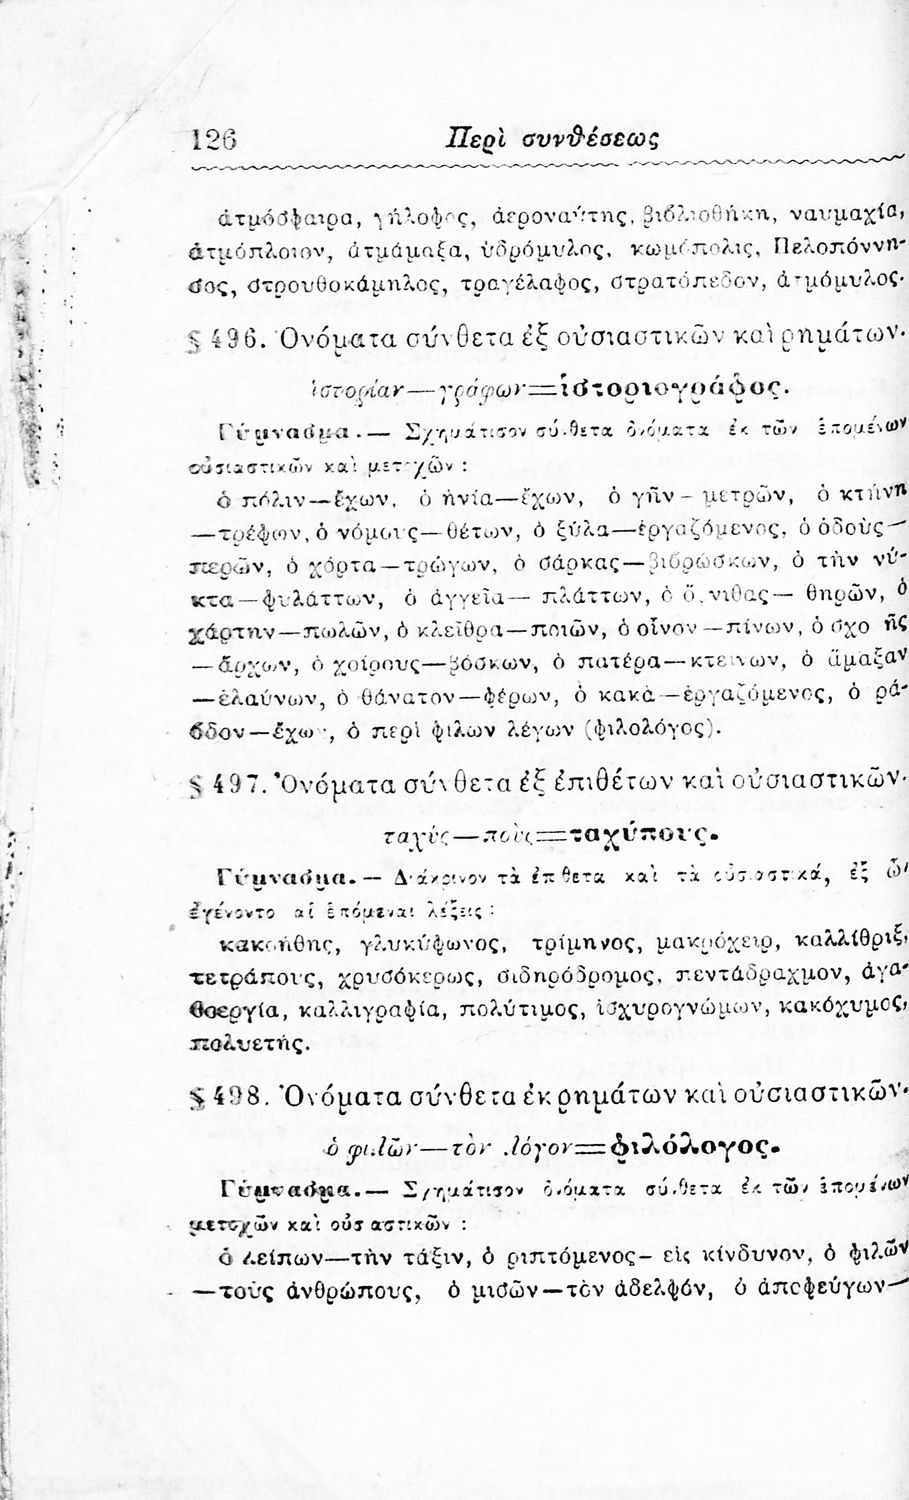 126 Περὶ συνθέσεως
ἀτμόσφαιρα, γήλοφος, ἀεροναύτης, βιβλιοθήκη, ναυμαχία,
ἀτμόπλοιον, ἀτμάμαξα, ὑδρόμυλος, κωμόπολις, Πελοπόννη-
σος, στρουθοκάμηλος, τραγέλαφος, στρατόπεδον, ἀτμόμυλος.
§ 496. Ὀνόματα σύνθετα ἐξ οὐσιαστικῶν καὶ ρημάτων.
ἱστορίαν—γράφων=ἱστοριογράφος.
Γύμνασμα.— Σχημάτισον σύνθετα ὀνόματα ἐκ τῶν ἑπομένων
οὐσιαστικῶν καὶ μετοχῶν :
ὁ πόλιν—ἔχων, ὁ ἡνία—ἔχων, ὁ γῆν—μετρῶν, ὁ κτήνη
—τρέφων, ὁ νόμους—θέτων, ὁ ξύλα—ἐργαζόμενος, ὁ ὁδοὺς—
περῶν, ὁ χόρτα—τρώγων, ὁ σάρκας—βιβρώσκων, ὁ τὴν νύ-
κτα—φυλάττων, ὁ ἀγγεῖα— πλάττων, ὁ ὄρνιθας— θηρῶν, ὁ
χάρτην—πωλῶν, ὁ κλεῖθρα—ποιῶν, ὁ οἶνον—πίνων, ὁ σχολῆς
—ἄρχων, ὁ χοίρους—βόσκων, ὁ πατέρα—κτείνων, ὁ ἅμαξαν
—ἐλαύνων, ὁ θάνατον—φέρων, ὁ κακὰ—ἐργαζόμενος, ὁ ρά-
βδον—ἔχων, ὁ περὶ φίλων λέγων (φιλολόγος).
§ 497. Ὀνόματα σύνθετα ἐξ ἐπιθέτων καὶ οὐσιαστικῶν.
ταχύς—ποὺς=ταχύπους.
Γύμνασμα.— Διάκρινον τὰ ἐπίθετα καὶ τὰ οὐσιαστικά, ἐξ ὧν
ἐγένοντο αἱ ἑπόμεναι λέξεις :
κακοήθης, γλυκύφωνος, τρίμηνος, μακρόχειρ, καλλίθριξ,
τετράπους, χρυσόκερως, σιδηρόδρομος, πεντάδραχμον, ἀγα-
θοεργία, καλλιγραφία, πολύτιμος, ἰσχυρογνώμων, κακόχυμος,
πολυετής.
§ 498. Ὀνόματα σύνθετα ἐκ ρημάτων καὶ οὐσιαστικῶν.
ὁ φιλῶν—τὸν λόγον=φιλόλογος.
Γύμνασμα.— Σχημάτισον ὀνόματα σύνθετα ἐκ τῶν ἑπομένων
μετοχῶν καὶ οὐσιαστικῶν :
ὁ λείπων—τὴν τάξιν, ὁ ριπτόμενος— εἰς κίνδυνον, ὁ φιλῶν
—τοὺς ἀνθρώπους, ὁ μισῶν—τὸν ἀδελφόν, ὁ ἀποφεύγων—